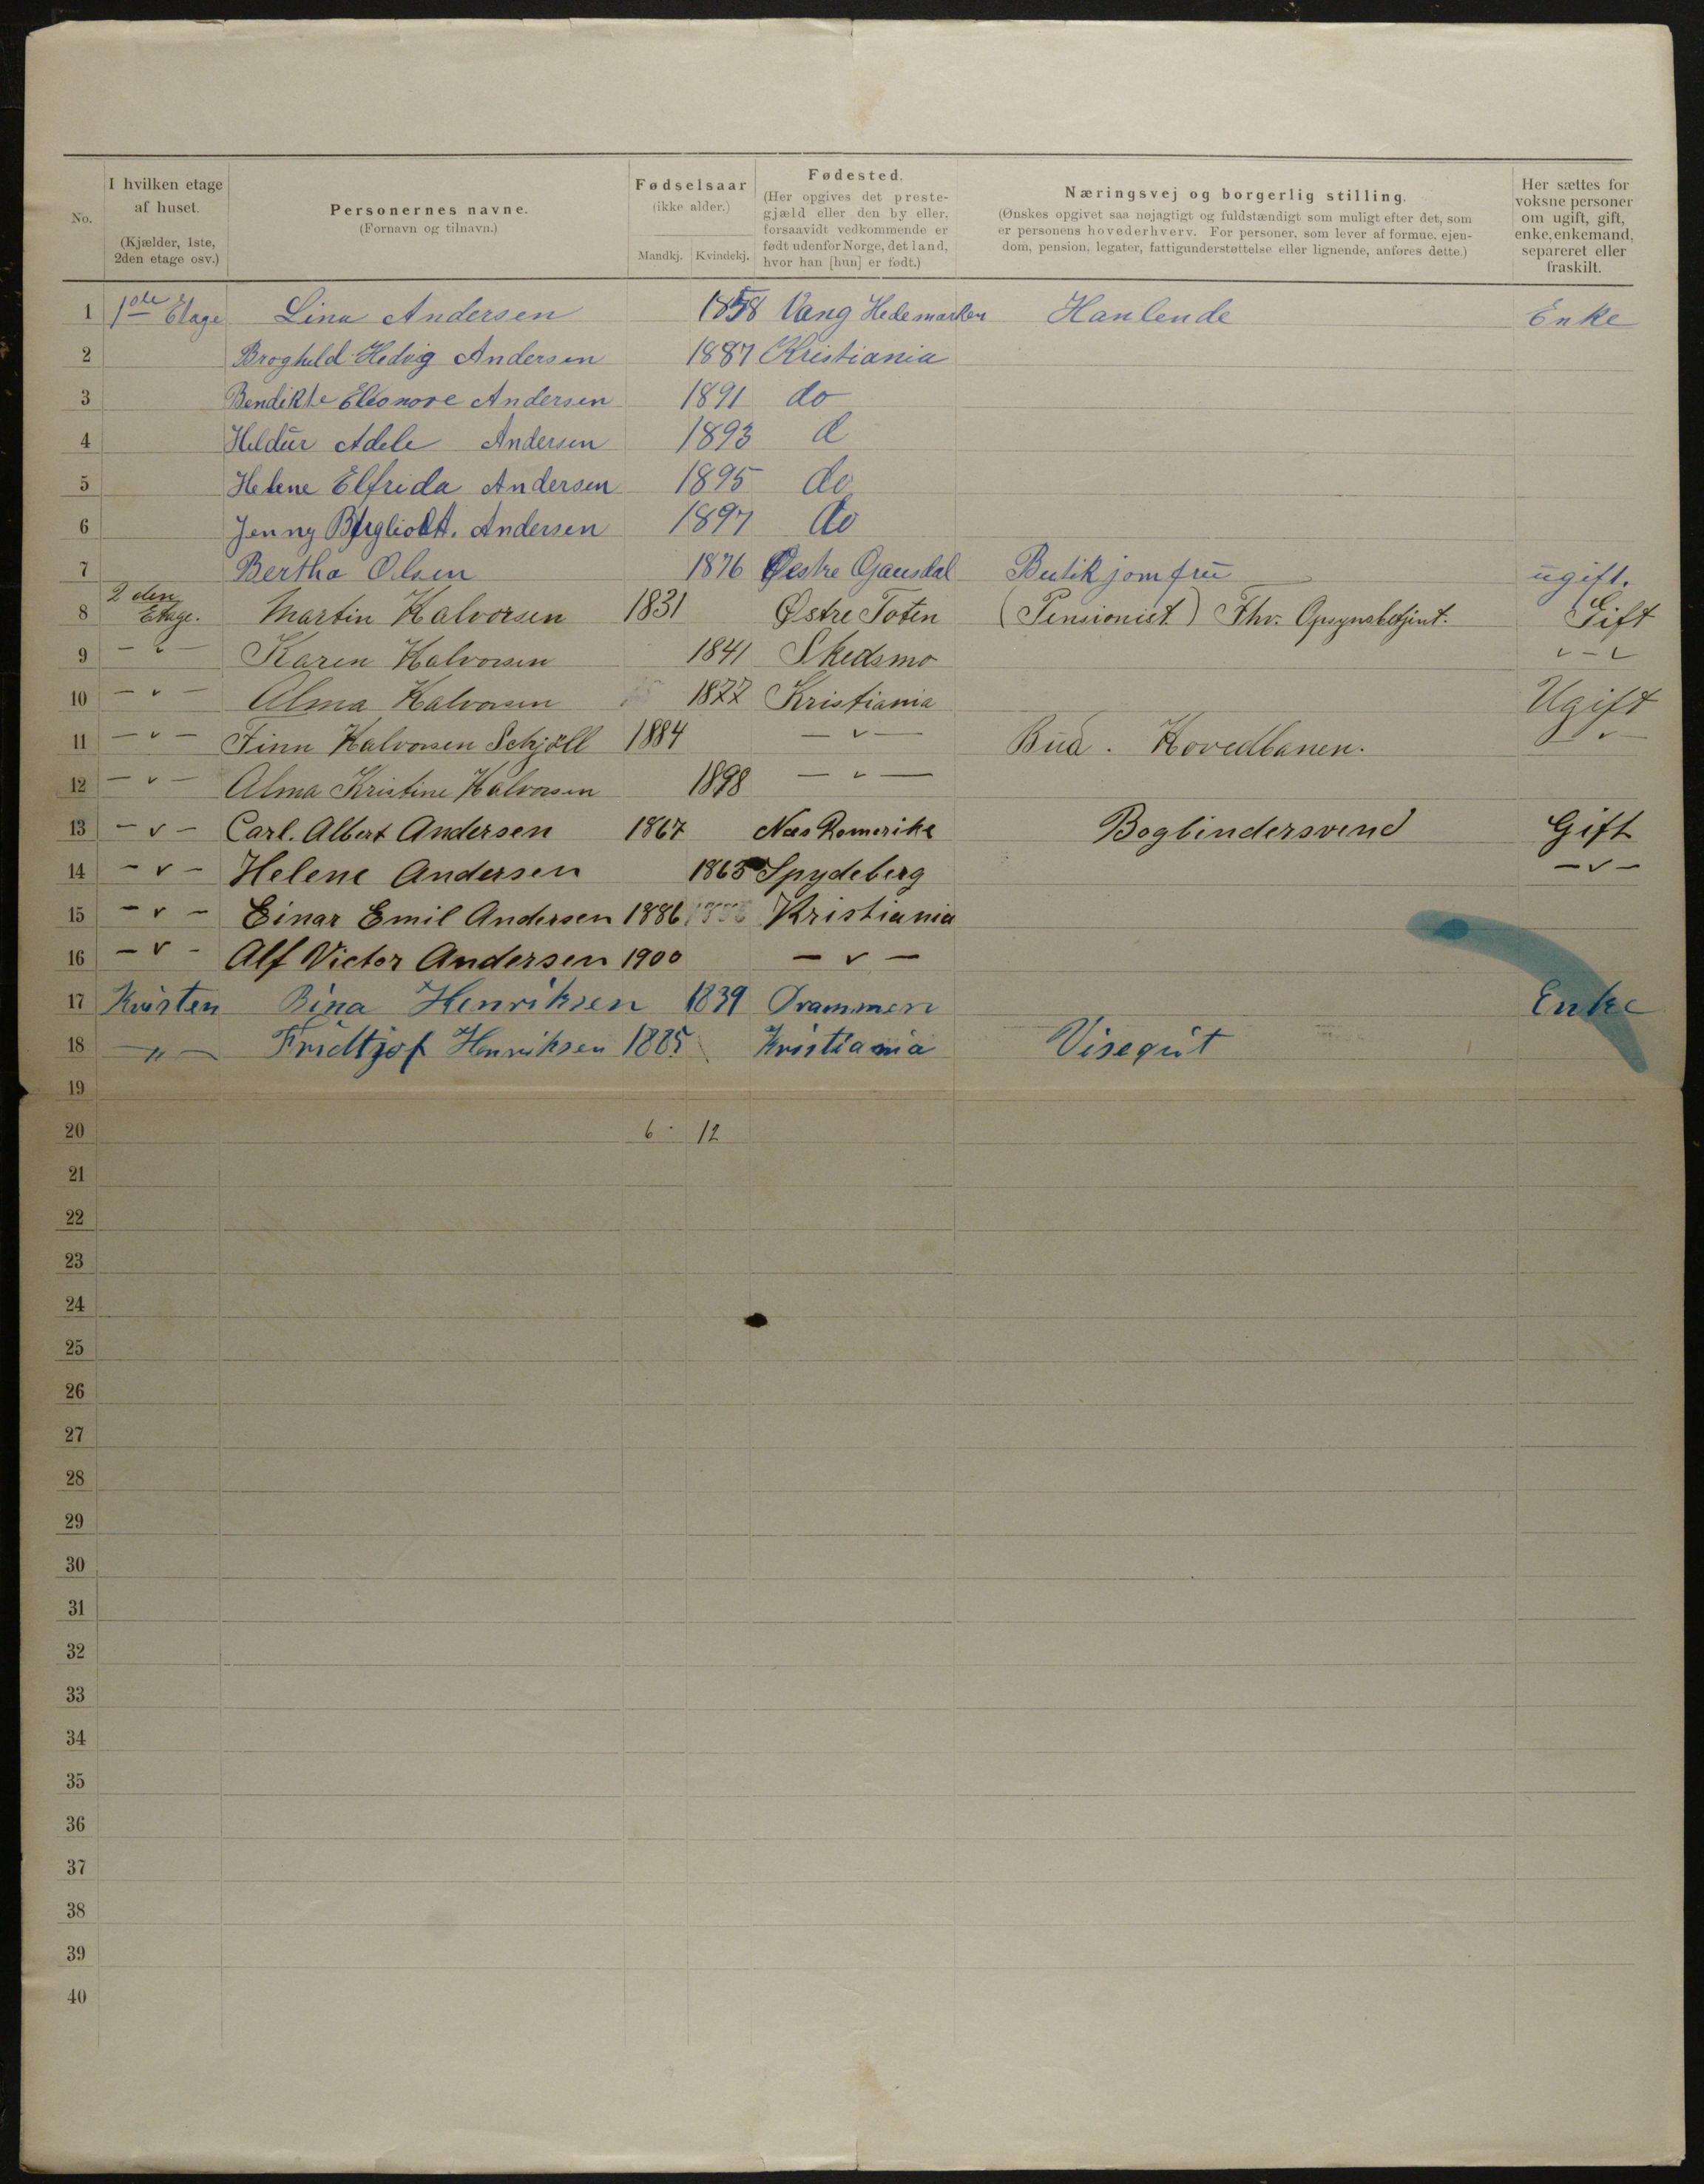 No. | I hvilken etage af huset. (Kjælder, 1ste, 2den etage osv.) | Personernes navne. (Fornavn og tilnavn.) | Fødselsaar (ikke alder.) Mandkj. Kvindekj. | Fødested. (Her opgives det prestegjæld eller den by eller, forsaavidt vedkommende er født udenfor Norge, det land, hvor han [hun] er født.) | Næringsvej og borgerlig stilling. (Ønskes opgivet saa nøjagtigt og fuldstændigt som muligt efter det, som er personens hovederhverv. For personer, som lever af formue, ejendom, pension, legater, fattigunderstøttelse eller lignende, anføres dette.) | Her sættes for voksne personer om ugift, gift, enke, enkemand, separeret eller fraskilt.
1 1ste Etage Lina Andersen 1858 Vang Hedemarken Hanlende Enke
2 Broghild Hedvig Andersen 1887 Kristiania
3 Bendikte Eleonore Andersen 1891 do
4 Hildur Adele Andersen 1893 d
5 Helene Elfrida Andersen 1895 do
6 Jenny Andersen 1897 do
7 Bertha Olsen 1876 Østre Gausdal Butikjomfru ugift.
8 2den Etage. Martin Halvorsen 1831 Østre Toten (Pensionist) Fhv. Opsynsbetjent. Gift
9 — " — Karen Halvorsen 1841 Skedsmo " - "
10 — " — Alma Halvorsen 1877 Kristiania Ugift
11 — " — Finn Halvorsen Schjöll 1884 — " — Bud. Hovedbanen. — " —
12 — " — Alma Kristine Halvorsen 1898 — " —
13 - v - Carl. Albert Andersen 1867 Næs Romerike Bogbindersvend Gift
14 - v - Helene Andersen 1865 Spydeberg - v -
15 - v - Einar Emil Andersen 1886 Kristiania
16 - v - Alf Victor Andersen 1900 - v -
17 Kvisten Bina Henriksen 1839 Drammen Enke
18 — " — Fridtjof Henriksen 1885 Kristiania Visegut
19
20 6 12
21
22
23
24
25
26
27
28
29
30
31
32
33
34
35
36
37
38
39
40